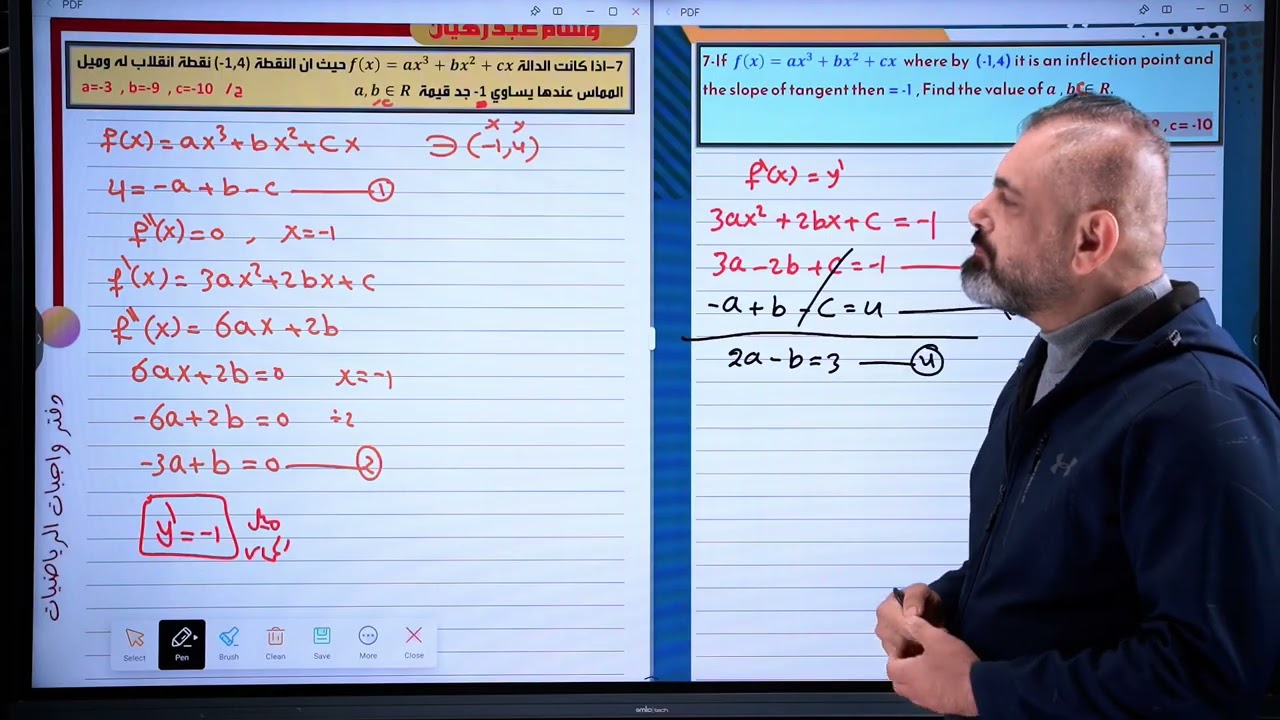 PDF
وسام عبد رهيان
7-اذا كانت الدالة f(x) = ax³ + bx² + cx حيث ان النقطة (-1,4) نقطة انقلاب له وميل
المماس عندها يساوي 1- جد قيمة a, b ∈ R
,c
a=-3 , b=-9 , c=-10 /ج
f(x) = ax³ + bx² + cx
x y
∋ (-1,4)
4 = -a + b - c ① 
f''(x) = 0 , x = -1
f'(x) = 3ax² + 2bx + c
f''(x) = 6ax + 2b
6ax + 2b = 0 x = -1
-6a + 2b = 0 ÷2
-3a + b = 0 ②
y' = -1
دفتر واجبات الرياضيات
Select
Pen
Brush
Clean
Save
More
Close
PDF
7-If f(x) = ax³ + bx² + cx where by (-1,4) it is an inflection point and
the slope of tangent then = -1 , Find the value of a , b c ∈ R.
, c= -10
f'(x) = y'
3ax² + 2bx + c = -1
3a - 2b + c = -1
-a + b - c = 4
2a - b = 3 ④